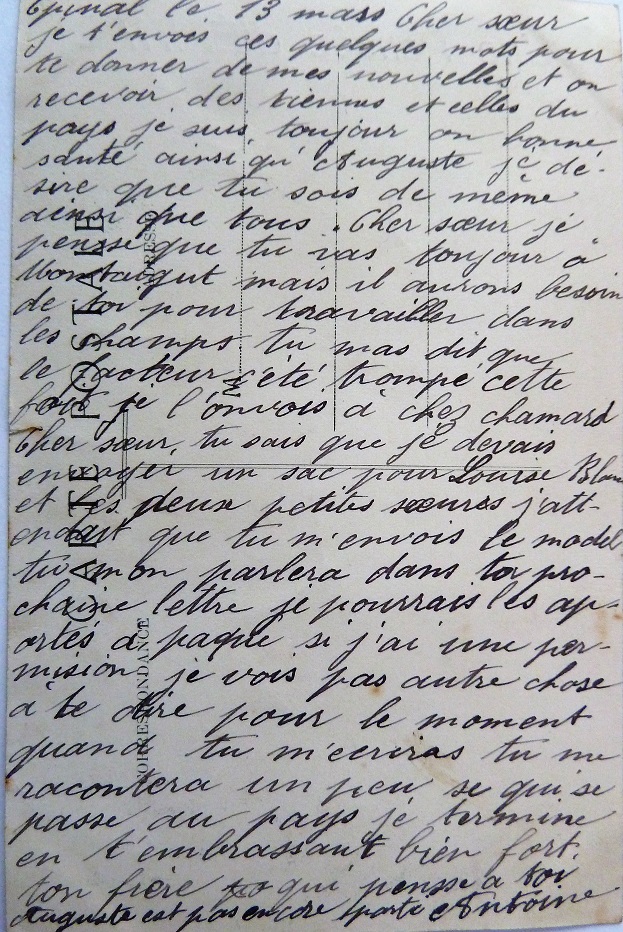 Epinal le 13 mars Cher sœur
je t'envois ces quelques mots pour
te donner de mes nouvelles et on
recevoir des tiennes et celles du
pays je suis toujour on bonne
santé ainsi qu'Auguste je dé-
sire que tu sois de même
ainsi que tous. Cher sœur je
pensse que tu vas toujour à
Montaigut mais il aurons besoin
de toi pour travailler dans
les champs tu mas dit que
le facteur s'été trompé cette
fois je l'envois à chez chamard
Cher sœur, tu sais que je devais
envoyer un sac pour Louise Blan
et les deux petites sœurs j'att-
endait que tu m'envois le model
tu mon parlera dans ta pro-
chaine lettre je pourrais les ap-
ortés à paque si j'ai une per-
mision je vois pas autre chose
à te dire pour le moment
quand tu m'ecriras tu me
racontera un peu se qui se
passe au pays je termine
en t'embrassant bien fort.
ton frère qui pensse a toi
Auguste est pas encore parti Antoine
CARTE POSTALE
CORRESPONDANCE
ADRESSE